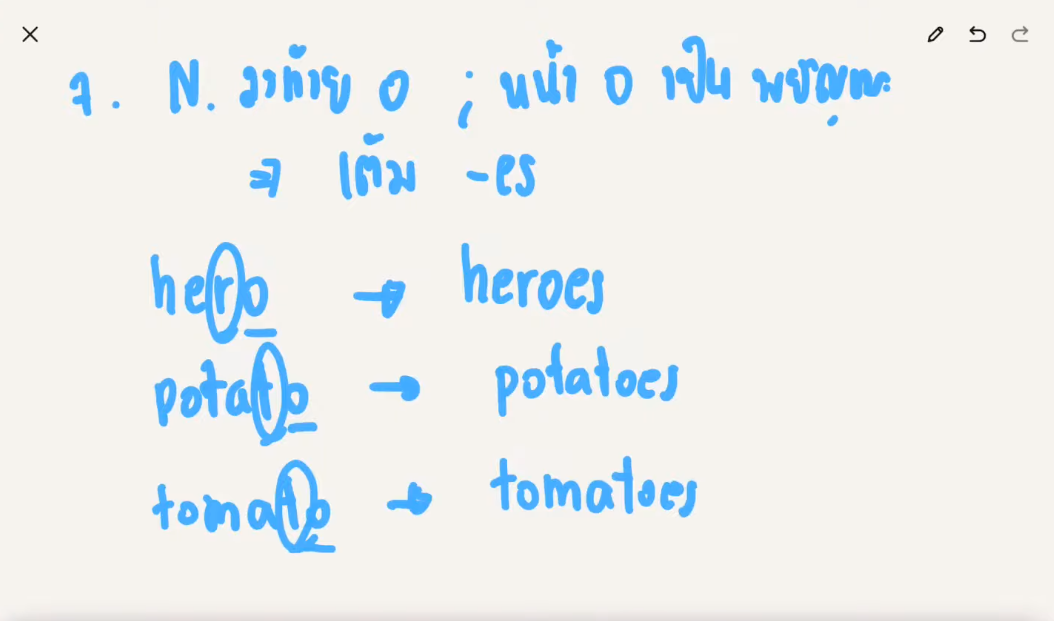 7. N. ลงท้าย o ; หน้า o เป็น พยัญชนะ
⇒ เติม -es
hero → heroes
potato → potatoes
tomato → tomatoes